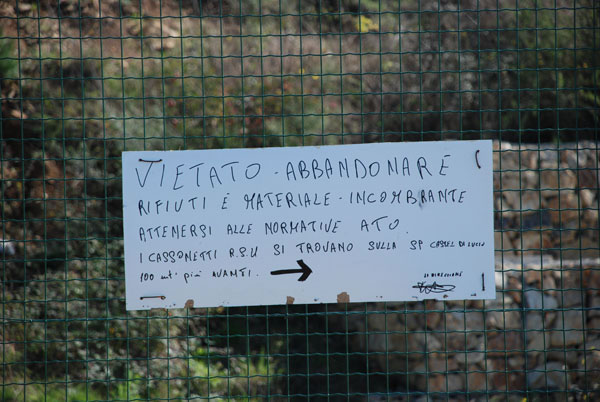 VIETATO - ABBANDONARE
RIFIUTI E MATERIALE - INCOMBRANTE
ATTENERSI ALLE NORMATIVE ATO.
I CASSONETTI R.S.U SI TROVANO SULLA SP CASTEL DI LUCIO
100 mt' più AVANTI.
LA DIREZIONE